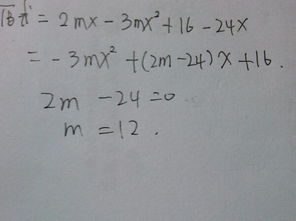 原式 = 2mx - 3mx² + 16 - 24x
= -3mx² + (2m-24)x + 16.
2m - 24 = 0
m = 12.